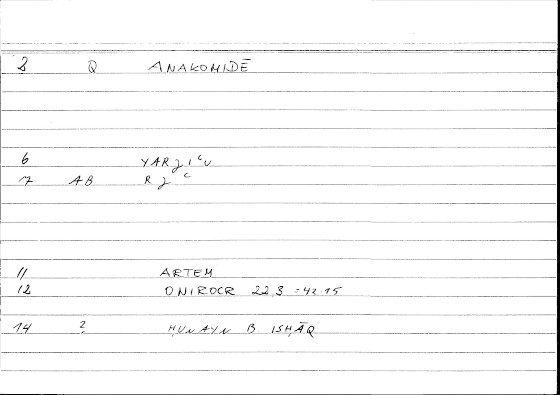 8 Q ANAKOMIDĒ
6 YARJIʿU
7 AB RJʿ
11 ARTEM
12 ONIROCR 22,3 = 42 15
14 2 ḤUNAYN B ISḤĀQ